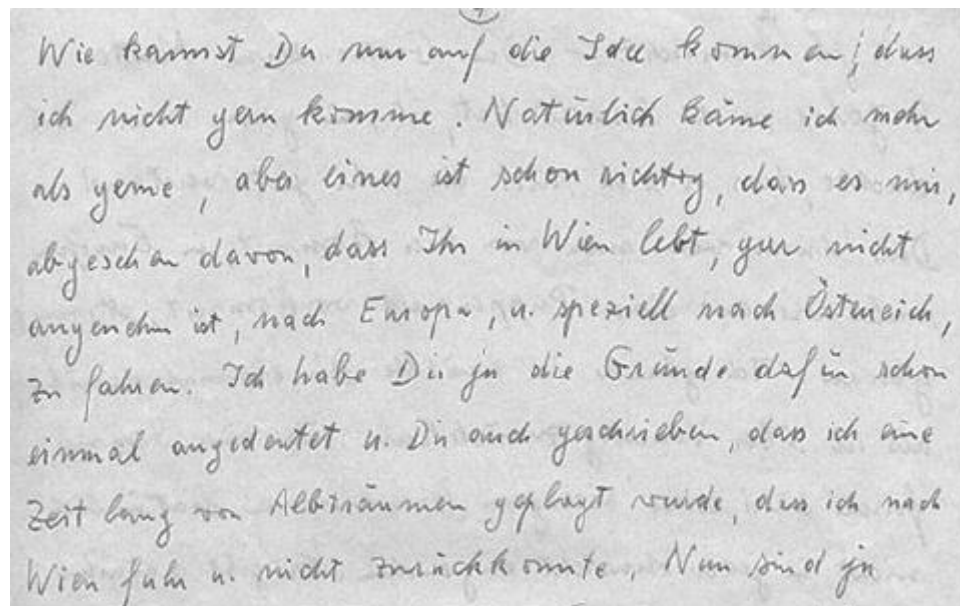 Wie kannst Du nur auf die Idee kommen, dass
ich nicht gern komme. Natürlich käme ich mehr
als gerne, aber eines ist schon richtig, dass es mir,
abgesehen davon, dass Ihr in Wien lebt, gar nicht
angenehm ist, nach Europa, u. speziell nach Österreich,
zu fahren. Ich habe Dir ja die Gründe dafür schon
einmal angedeutet u. Dir auch geschrieben, dass ich eine
Zeit lang von Albträumen geplagt wurde, dass ich nach
Wien fuhr u. nicht zurückkonnte. Nun sind ja